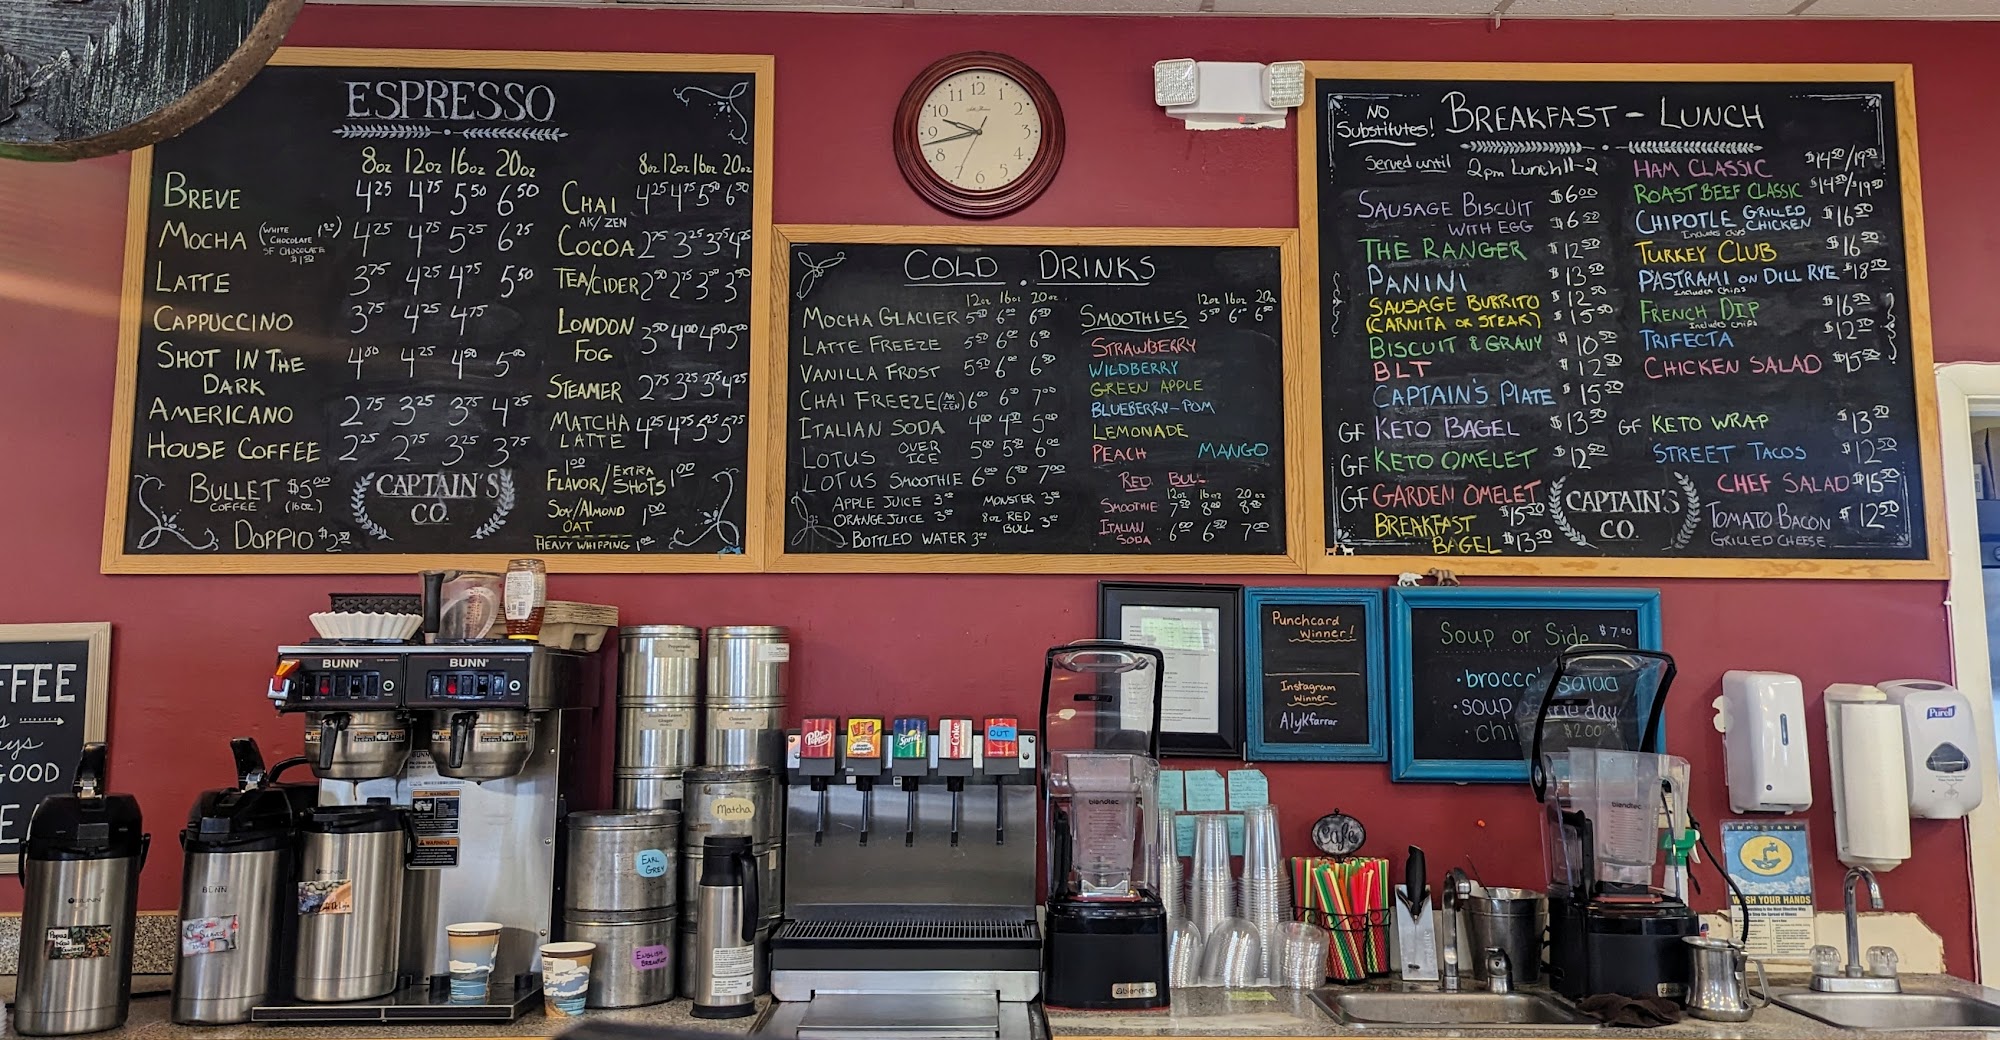 ESPRESSO
8oz 12oz 16oz 20oz
BREVE 4.25 4.75 5.50 6.50
MOCHA (WHITE CHOCOLATE 1.00) 4.25 4.75 5.25 6.25
SF CHOCOLATE
LATTE 3.75 4.25 4.75 5.50
CAPPUCCINO 3.75 4.25 4.75
SHOT IN THE DARK 4.00 4.25 4.50 5.00
AMERICANO 2.75 3.25 3.75 4.25
HOUSE COFFEE 2.25 2.75 3.25 3.75
BULLET $5.00
COFFEE (16oz)
DOPPIO $2.50
CAPTAIN'S
CO.
8oz 12oz 16oz 20oz
CHAI 4.25 4.75 5.50 6.50
AK/ZEN
COCOA 2.75 3.25 3.75 4.25
TEA/CIDER 2.50 2.75 3.00 3.50
LONDON FOG 3.50 4.00 4.50 5.00
STEAMER 2.75 3.25 3.75 4.25
MATCHA LATTE 4.25 4.75 5.25 5.75
1.00 FLAVOR/EXTRA SHOTS 1.00
SOY/ALMOND
OAT 1.00
HEAVY WHIPPING 1.00
12 1 2 3 4 5 6 7 8 9 10 11
COLD DRINKS
12oz 16oz 20oz
MOCHA GLACIER 5.50 6.00 6.50
LATTE FREEZE 5.50 6.00 6.50
VANILLA FROST 5.50 6.00 6.50
CHAI FREEZE (AK ZEN) 6.00 6.50 7.00
ITALIAN SODA 4.00 4.50 5.00
LOTUS OVER ICE 5.00 5.50 6.00
LOTUS SMOOTHIE 6.00 6.50 7.00
APPLE JUICE 3
ORANGE JUICE 3
BOTTLED WATER 3.00
MONSTER 3
8oz RED BULL 3
12oz 16oz 20oz
SMOOTHIES 5.50 6.00 6.50
STRAWBERRY
WILDBERRY
GREEN APPLE
BLUEBERRY-POM
LEMONADE
PEACH MANGO
RED BULL
12oz 16oz 20oz
SMOOTHIE 7.50 8.00 8.50
ITALIAN SODA 6.00 6.50 7.00
NO
Substitutes!
BREAKFAST - LUNCH
Served until 2pm Lunch 11-2
SAUSAGE BISCUIT $6.00
WITH EGG $6.50
THE RANGER $12.50
PANINI $13.50
SAUSAGE BURRITO $12.50
(CARNITA OR STEAK) $15.50
BISCUIT & GRAVY $10.50
BLT $12.50
CAPTAIN'S PLATE $15.50
GF KETO BAGEL $13.50
GF KETO OMELET $12.50
GF GARDEN OMELET $15.50
BREAKFAST BAGEL $13.50
HAM CLASSIC $14.50/19.50
ROAST BEEF CLASSIC $14.50/$19.50
CHIPOTLE GRILLED CHICKEN $16.50
Includes chips
TURKEY CLUB $16.50
PASTRAMI ON DILL RYE $18.50
Includes Chips
FRENCH DIP $16.50
Includes chips
TRIFECTA $12.50
CHICKEN SALAD $15.50
GF KETO WRAP $13.50
STREET TACOS $12.50
CHEF SALAD $15.50
TOMATO BACON $12.50
GRILLED CHEESE
CAPTAIN'S
CO.
Punchcard
Winner!
Instagram
Winner
AlyKfarrar
Soup or Side $7.50
• brocc salad
• soup day
• chi $2.00
FFEE
GOOD
BUNN
BUNN
BUNN
BUNN
BUNN
WARNING
WARNING
Matcha
EARL
GREY
ENGLISH
BREAKFAST
Dr Pepper
Sprite
Coke
OUT
blendtec
blendtec
blendtec
Cafe
Purell
IMPORTANT
WASH YOUR HANDS